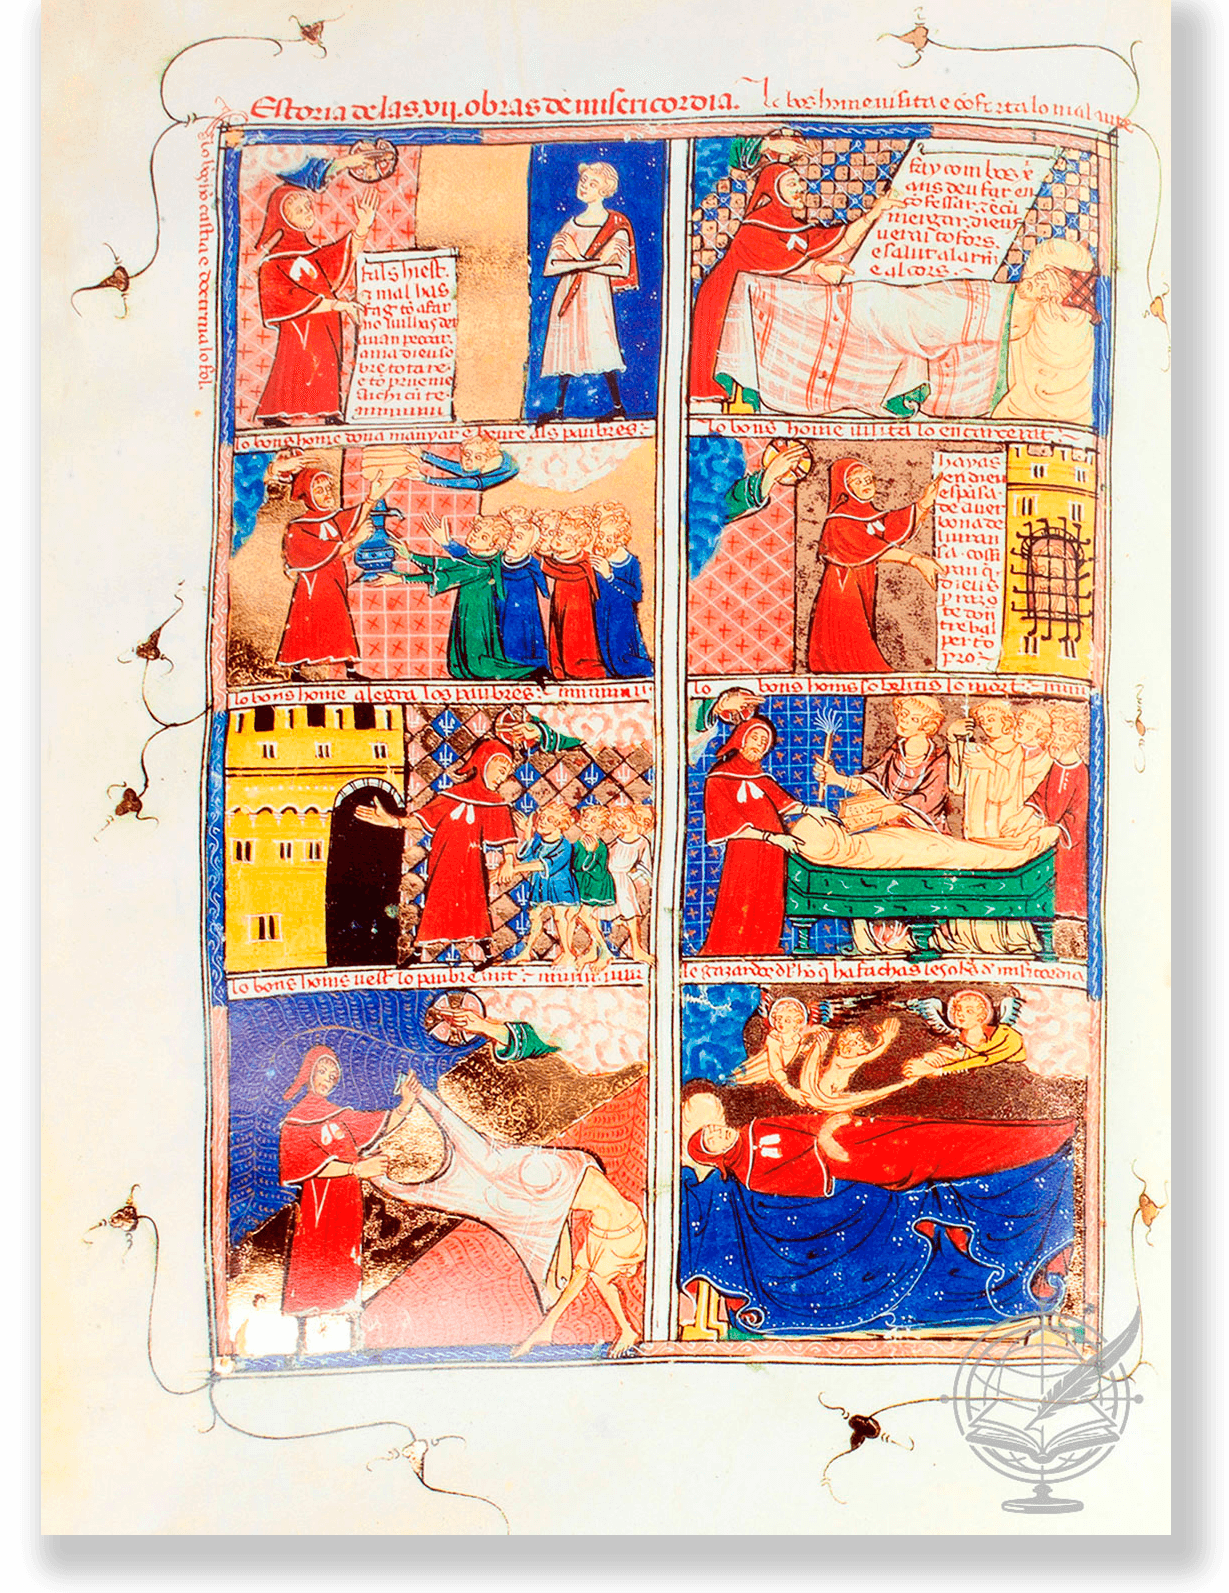 Estoria de las .vij. obras de misericordia.
Lo bos home uisita e coforta lo malaute
lo bos ho castia e doctrina lo fol.
fals hi est.
e mal has
fag to afar
no uulhas de
auan peccar
ama dieu so
bre tota re
e to prueme
aichi cū te
fay com bos
ans deu far en
cofessar. e cū
mergar. dieus
ueras cofors.
e salut alarm
e al cors.
lo bons home dona maniar e beure als paubres
lo bons home uisita lo encarcerat
hayas
en dieu
espasa
de auer
bona de
liuran
sa. cossi
ran q.
dieus
te don
trebal
per to
pro
lo bons home alegra los paubres
lo bons homs sebelitis lo mort
lo bons homs uest lo paubre nut
le gazardo dl ho q ha fachas les obras d misericordia